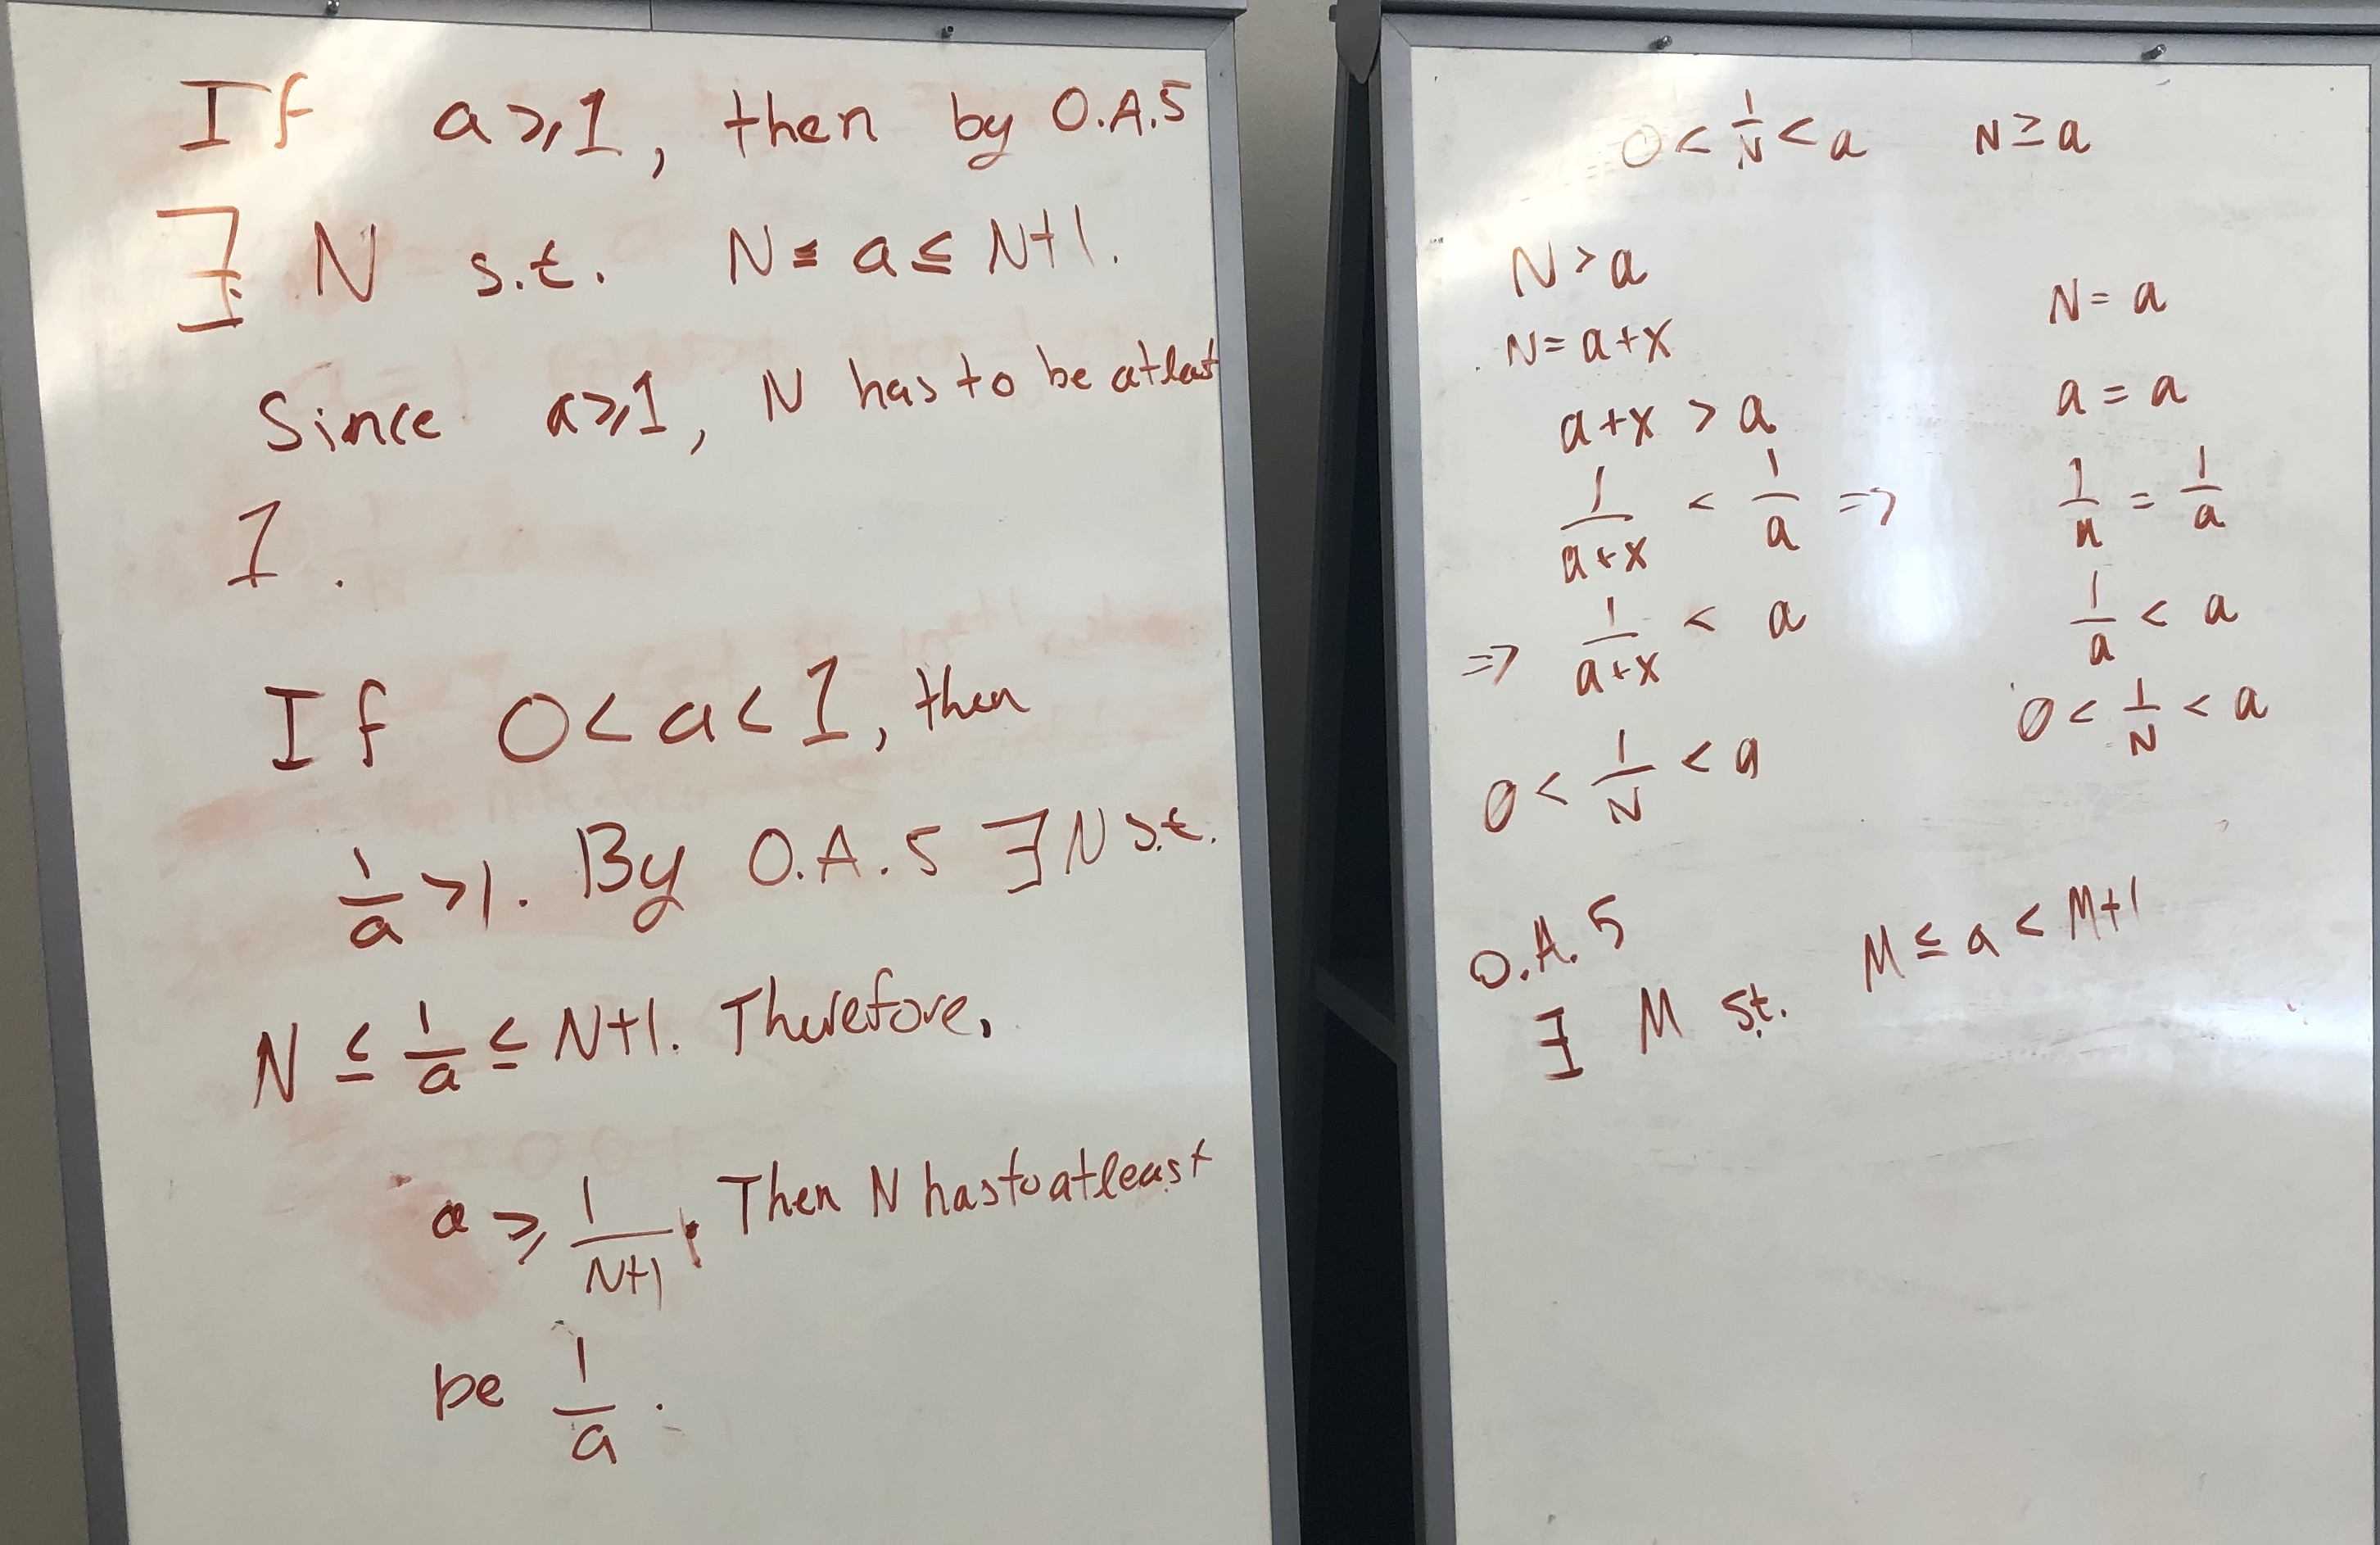 If a ⩾ 1, then by O.A.5
∃ N s.t. N ≤ a ≤ N+1.
Since a ⩾ 1, N has to be at last
1.
If 0 < a < 1, then
1/a > 1. By O.A.5 ∃ N s.t.
N ≤ 1/a ≤ N+1. Therefore,
a ⩾ 1/(N+1). Then N has to at least
be 1/a.
0 < 1/N < a N ≥ a
N > a
N = a + x
a + x > a
1/(a+x) < 1/a ⇒
⇒ 1/(a+x) < a
0 < 1/N < a
N = a
a = a
1/n = 1/a
1/a < a
0 < 1/N < a
O.A.5
∃ M st. M ≤ a < M+1